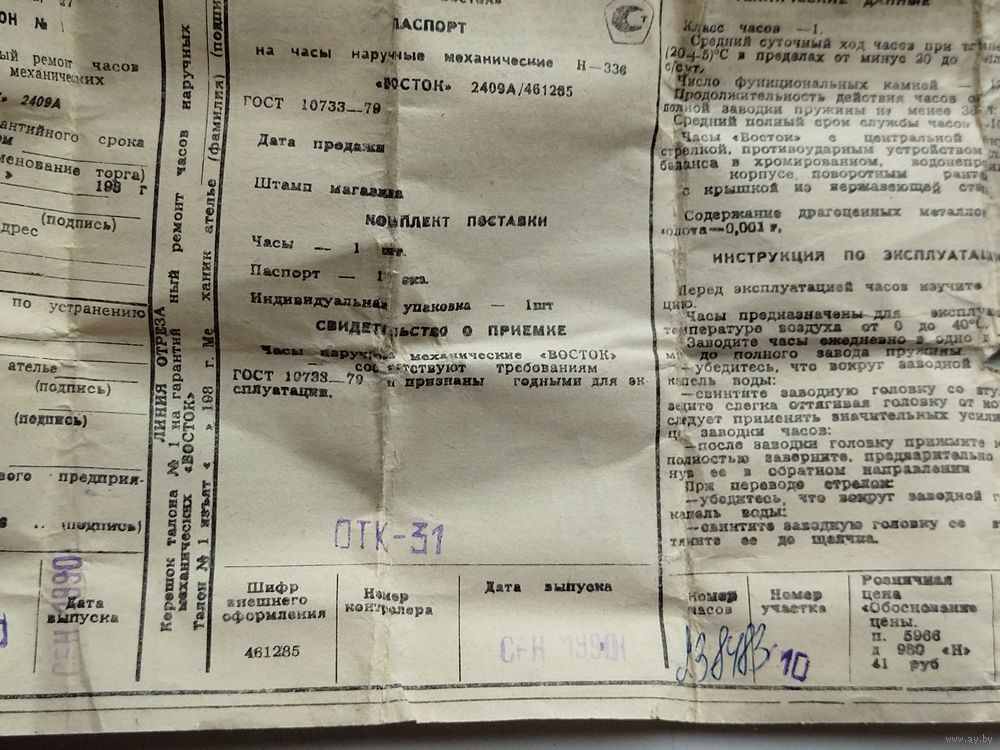 ОН № 1
ый ремонт часов
механических
» 2409А
антийного срока
менование торга)
» 198 г
(подпись)
дрес
по устранению
ателье
(подпись)
(подпись)
вого предприя-
(подпись)
Дата
выпуска
СЕН 1990
ЛИНИЯ ОТРЕЗА
Корешок талона № 1 на гарантий ный ремонт часов наручных
механических «ВОСТОК»
Талон № 1 изъят « » 198 г. Ме ханик ателье (фамилия) (подпи
ПАСПОРТ
на часы наручные механические Н—336
«ВОСТОК» 2409А/461285
ГОСТ 10733—79
Дата продажи
Штамп магазина
КОМПЛЕКТ ПОСТАВКИ
Часы — 1 шт.
Паспорт — 1 экз.
Индивидуальная упаковка — 1шт
СВИДЕТЕЛЬСТВО О ПРИЕМКЕ
Часы наручные механические «ВОСТОК»
соответствуют требованиям
ГОСТ 10733—79 и признаны годными для эк-
сплуатации.
ОТК-31
Шифр
внешнего
оформления
461285
Номер
контролера
Дата выпуска
СЕН 1990
ТЕХНИЧЕСКИЕ ДАННЫЕ
Класс часов —1.
Средний суточный ход часов при
(20+5)°С в пределах от минус 20 до
с/сут.
Число функциональных камней —
Продолжительность действия часов о
полной заводки пружины не менее 38
Средний полный срок службы часов —10
Часы «Восток» с центральной
стрелкой, противоударным устройством
баланса в хромированном, водонепр
корпусе поворотным ранто
с крышкой из нержавеющей ста
Содержание драгоценных металло
золота—0,001 г,
ИНСТРУКЦИЯ ПО ЭКСПЛУАТАЦ
Перед эксплуатацией часов изучите
цию.
Часы предназначены для эксплуа
температуре воздуха от 0 до 40°С.
Заводите часы ежедневно в одно и
до полного завода пружины
—убедитесь, что вокруг заводной
капель воды:
—свинтите заводную головку со вту
зедите слегка оттягивая головку от ко
следует применять значительных усили
заводки часов:
—после заводки головку прижмите к
полностью заверните, предварительно
нув ее в обратном направлении
При переводе стрелок:
—убедитесь, что вокруг заводной г
капель воды:
—свинтите заводную головку се в
тяните ее до щелчка.
Номер
часов
238483
Номер
участка
10
Розничная
цена
«Обоснование
цены.
п. 5966
д 980 «Н»
41 руб
www.ay.by